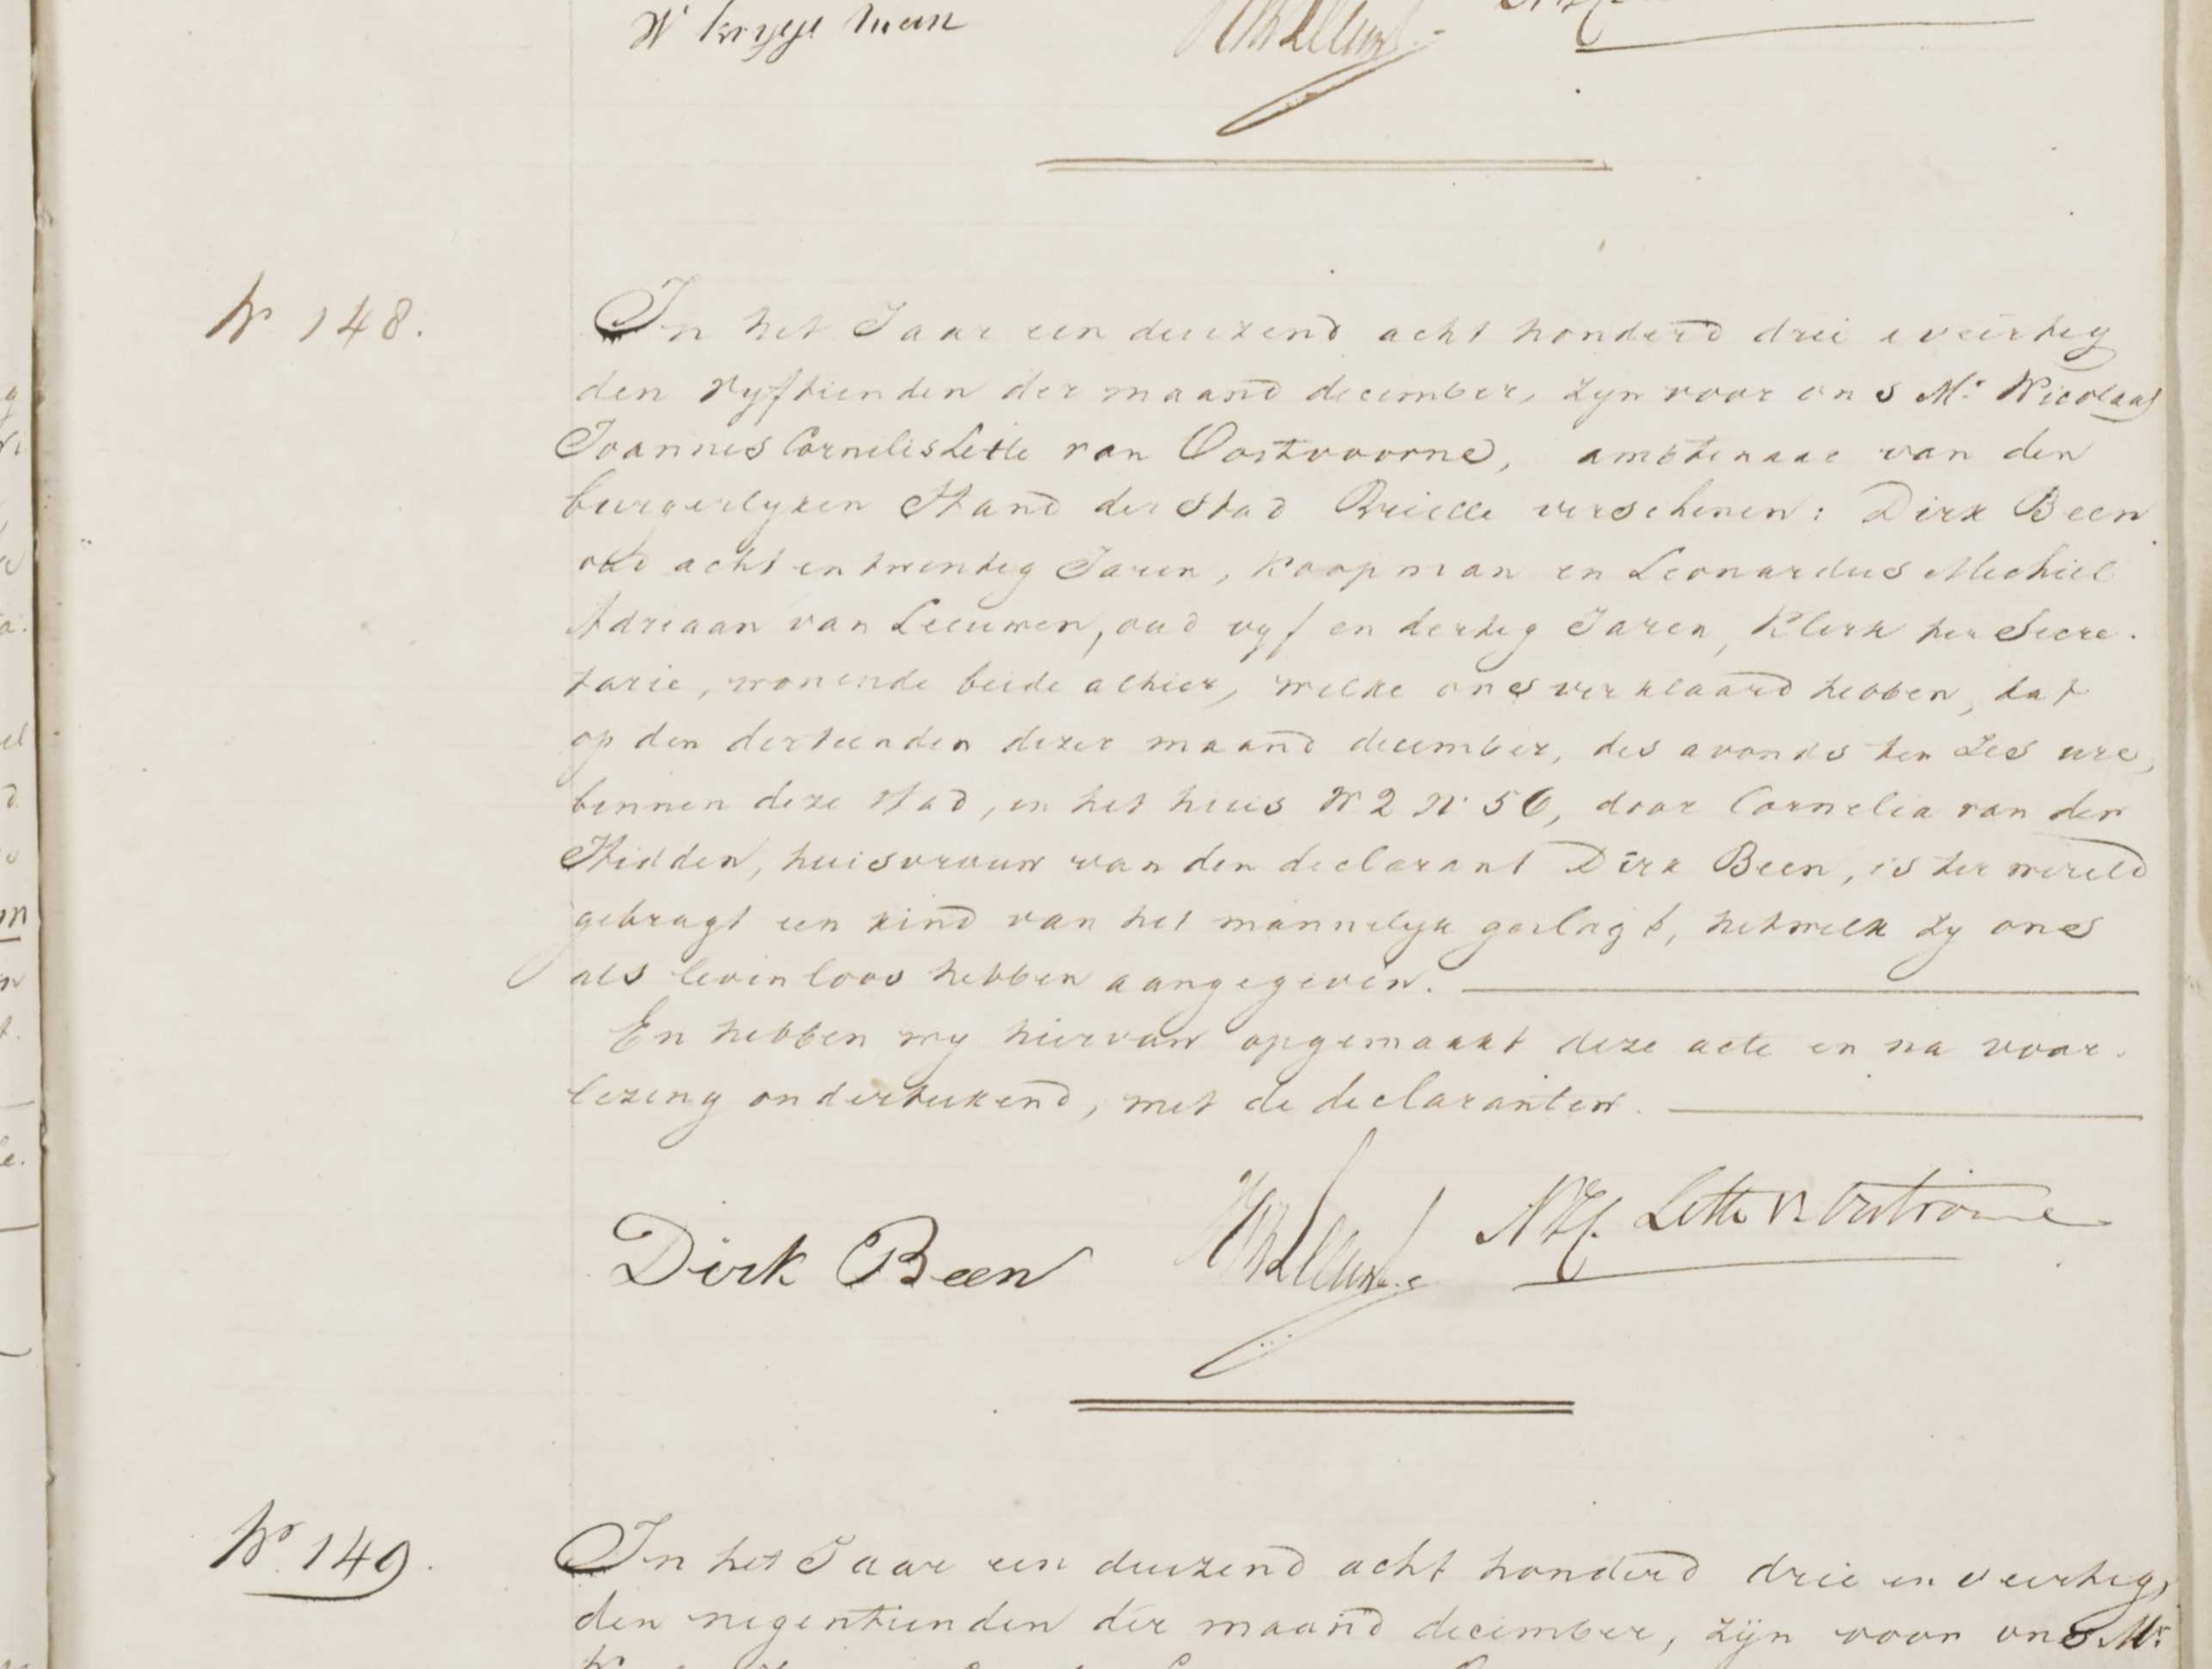 W Krygsman
N 148.
In het Jaar een duizend acht honderd drie e veirtig
den vyftienden der maand december, zyn voor ons Mr. Nicolaas
Joannes Cornelis Lette van Oostvoorne, ambtenaar van den
burgerlyken Stand der stad Brielle verschenen: Dirk Been
oud acht en twentig Jaren, Koopman en Leonardus Mechiel
Adriaan van Leeuwen, oud vyf en dertig Jaren, Klerk ter Secre-
tarie, wonende beide alhier, welke ons verklaard hebben, dat
op den derteenden dezer maand december, des avonds ten Zes ure,
binnen deze stad, in het huis W. 2 N. 56, door Cornelia van der
Hidden, huisvrouw van den declarant Dirk Been, is ter wereld
gebragt een kind van het mannelyk geslagt, hetwelk zy ons
als levenloos hebben aangegeven.
En hebben wy hiervan opgemaakt deze acte en na voor-
lezing onderteekend, met de declaranten.
Dirk Been Lette v. Oostvoorne
N. 149.
In het Jaar een duizend acht honderd drie en veertig,
den negentienden der maand december, zijn voor ons Mr.